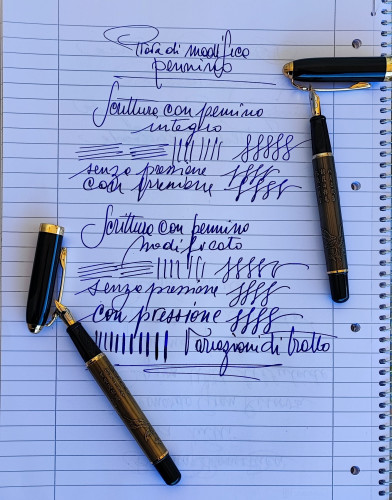 Prova di modifica
pennino
Scrittura con pennino
integro
senza pressione
con pressione
Scrittura con pennino
modificato
senza pressione
con pressione
Variazioni di tratto